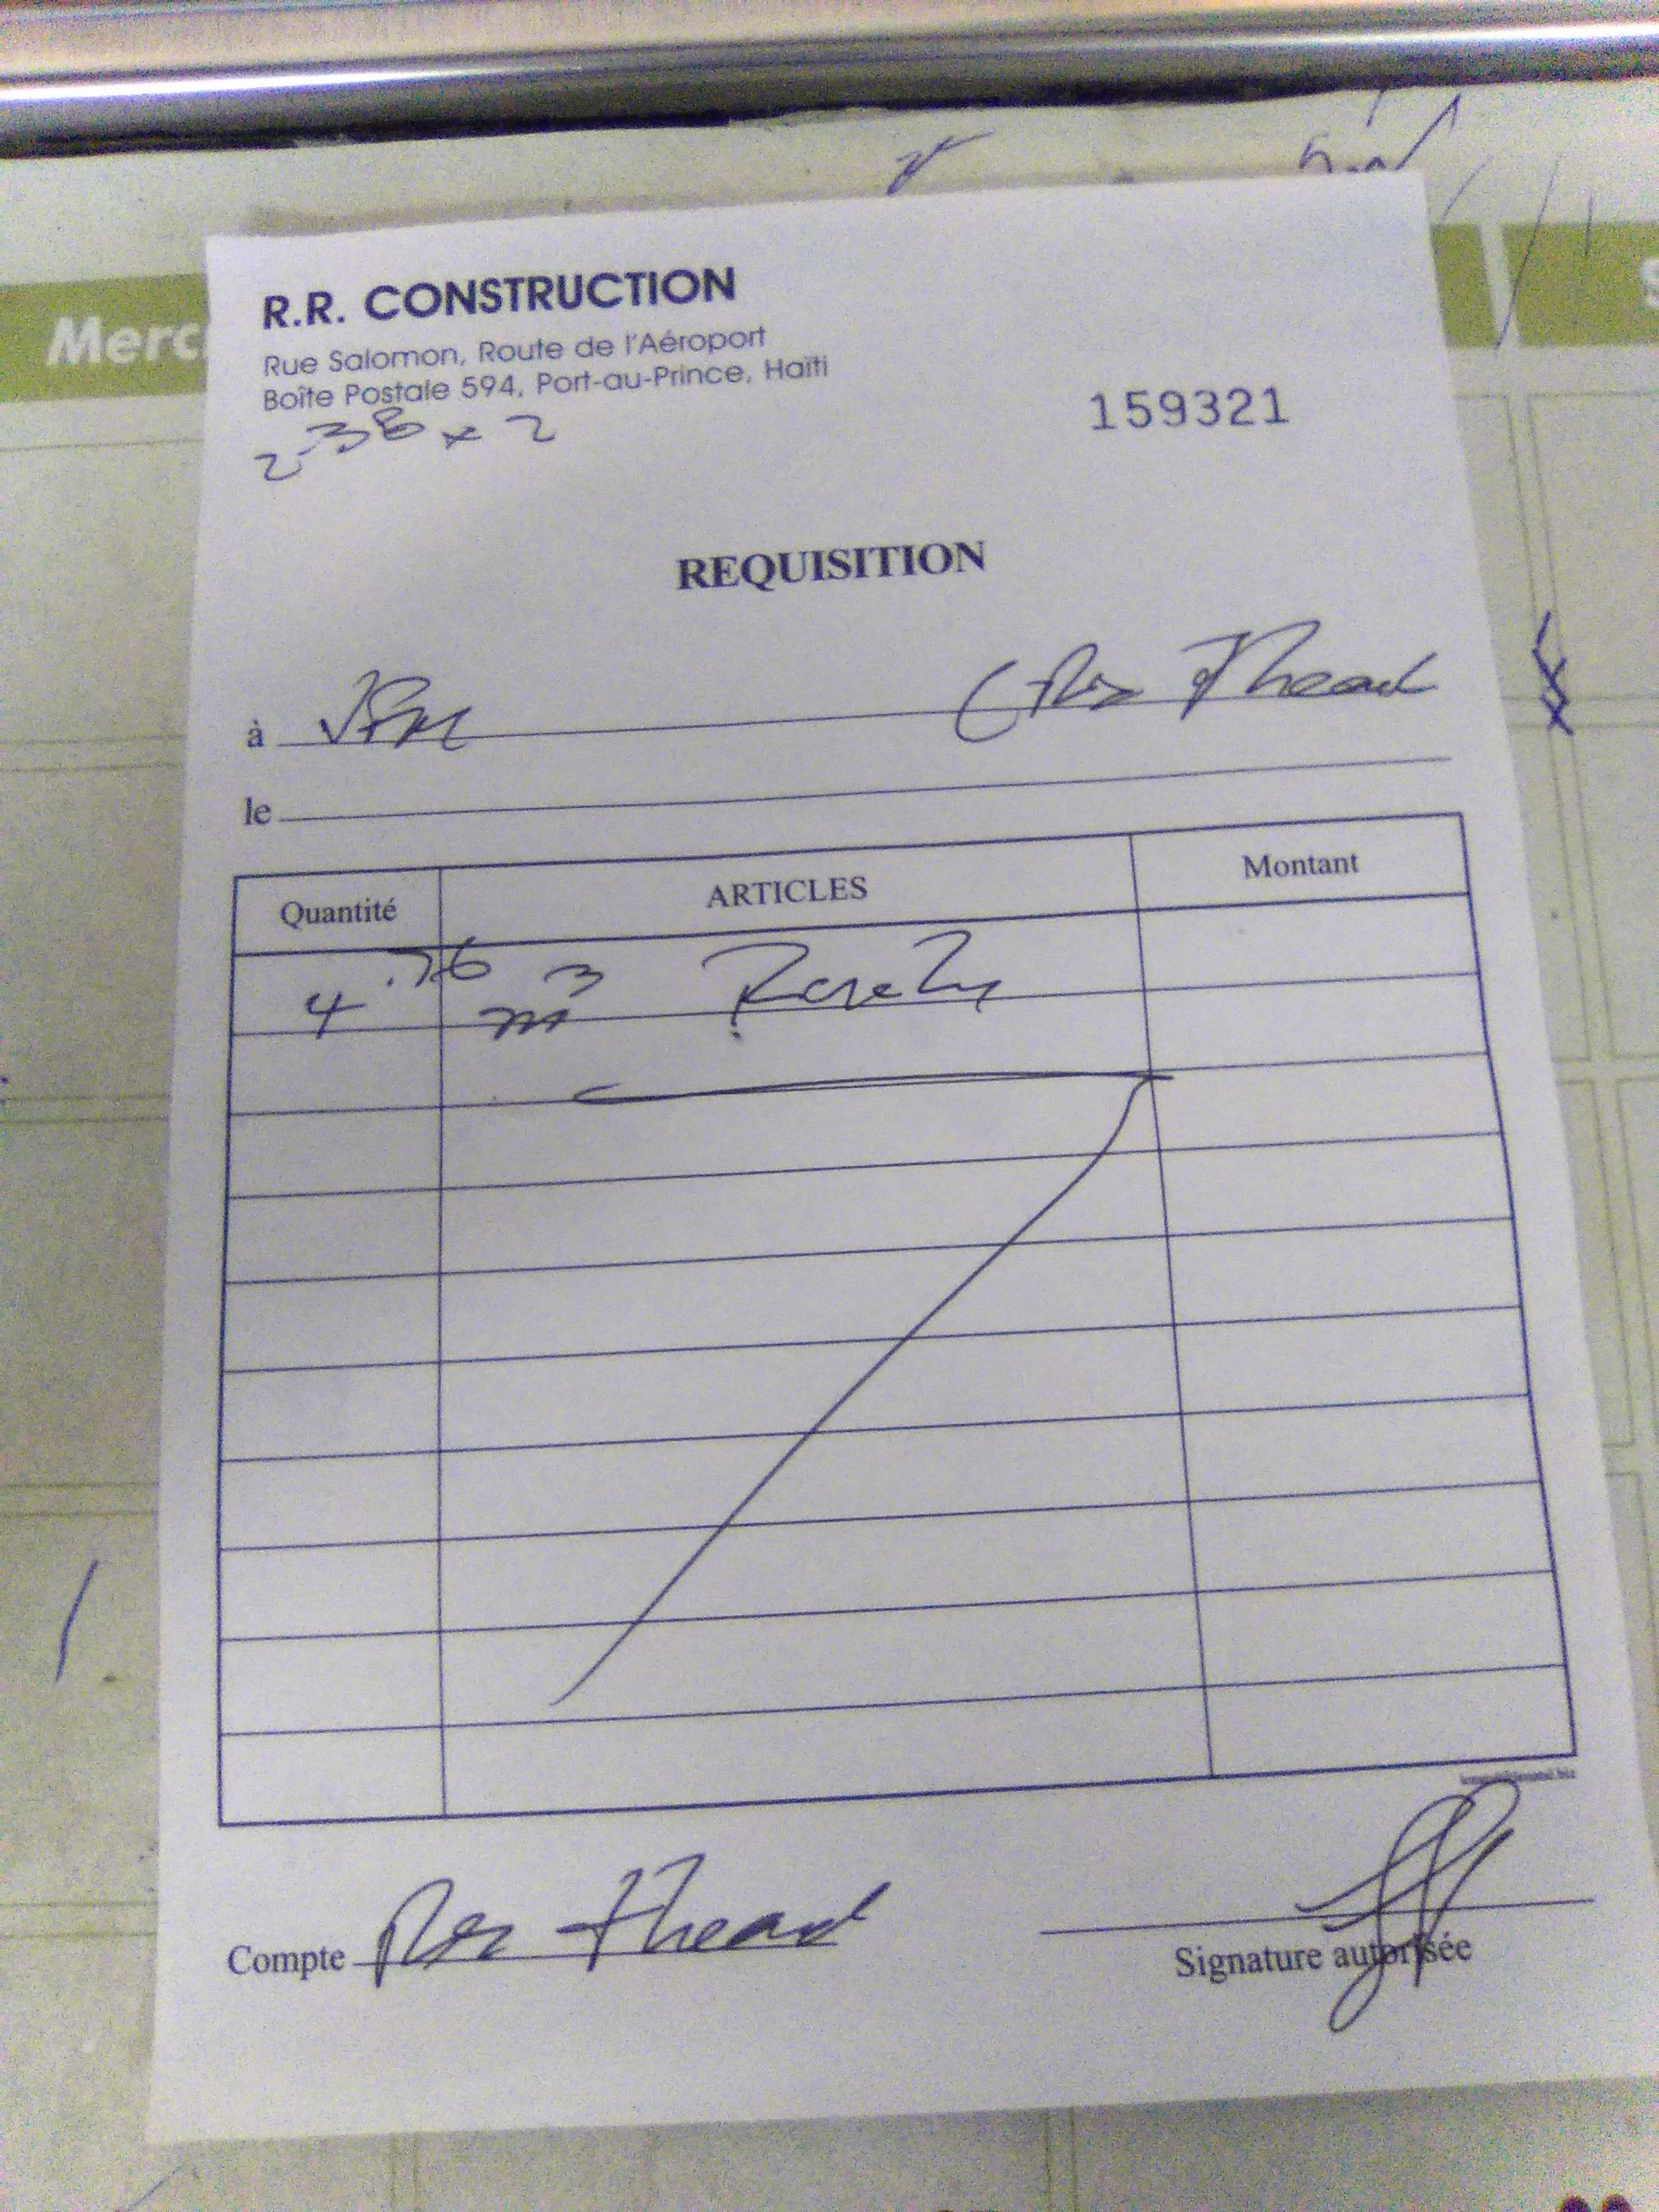 Merc
R.R. CONSTRUCTION
Rue Salomon, Route de l'Aéroport
Boîte Postale 594, Port-au-Prince, Haïti
2.38 x 2
159321
REQUISITION
à
le
Quantité ARTICLES Montant
4.76 m3
Compte
Signature autorisée